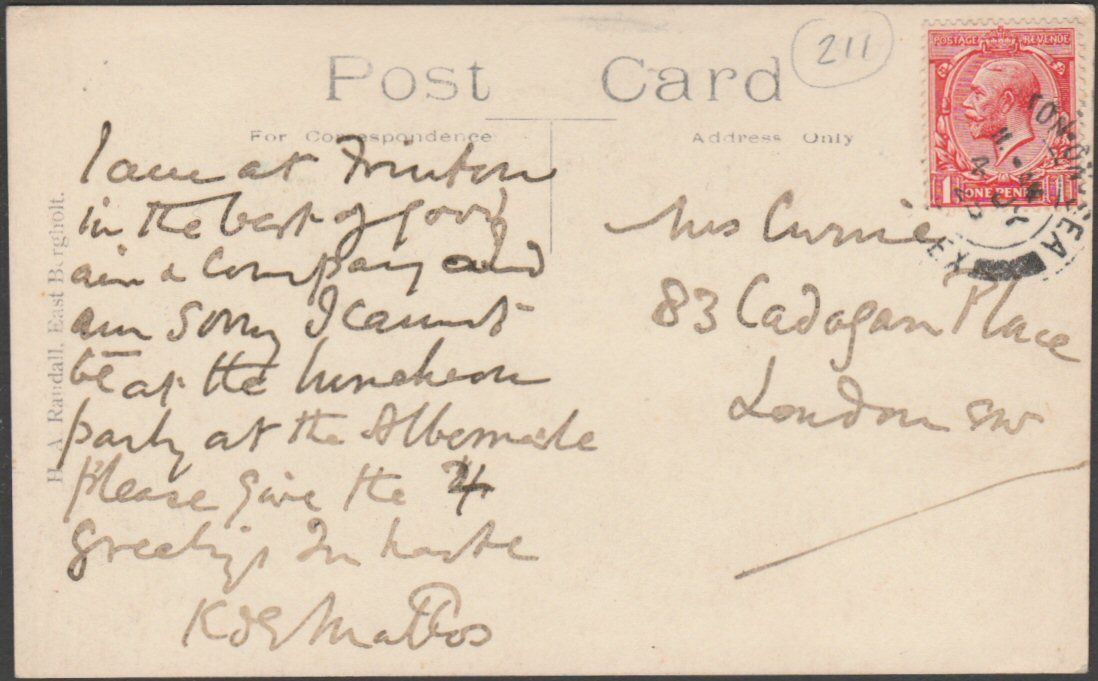 Post Card
211
For Correspondence
Address Only
POSTAGE REVENUE
1 ONE PENNY 1
TON-ON-SEA
I am at Frinton
in the best of good
air & company and
am sorry I cannot
be at the luncheon
party at the Albemarle
Please give the 4
greetings In haste
K de Mattos
Mrs Currie
83 Cadogan Place
London SW
H. A. Randall, East Bergholt.